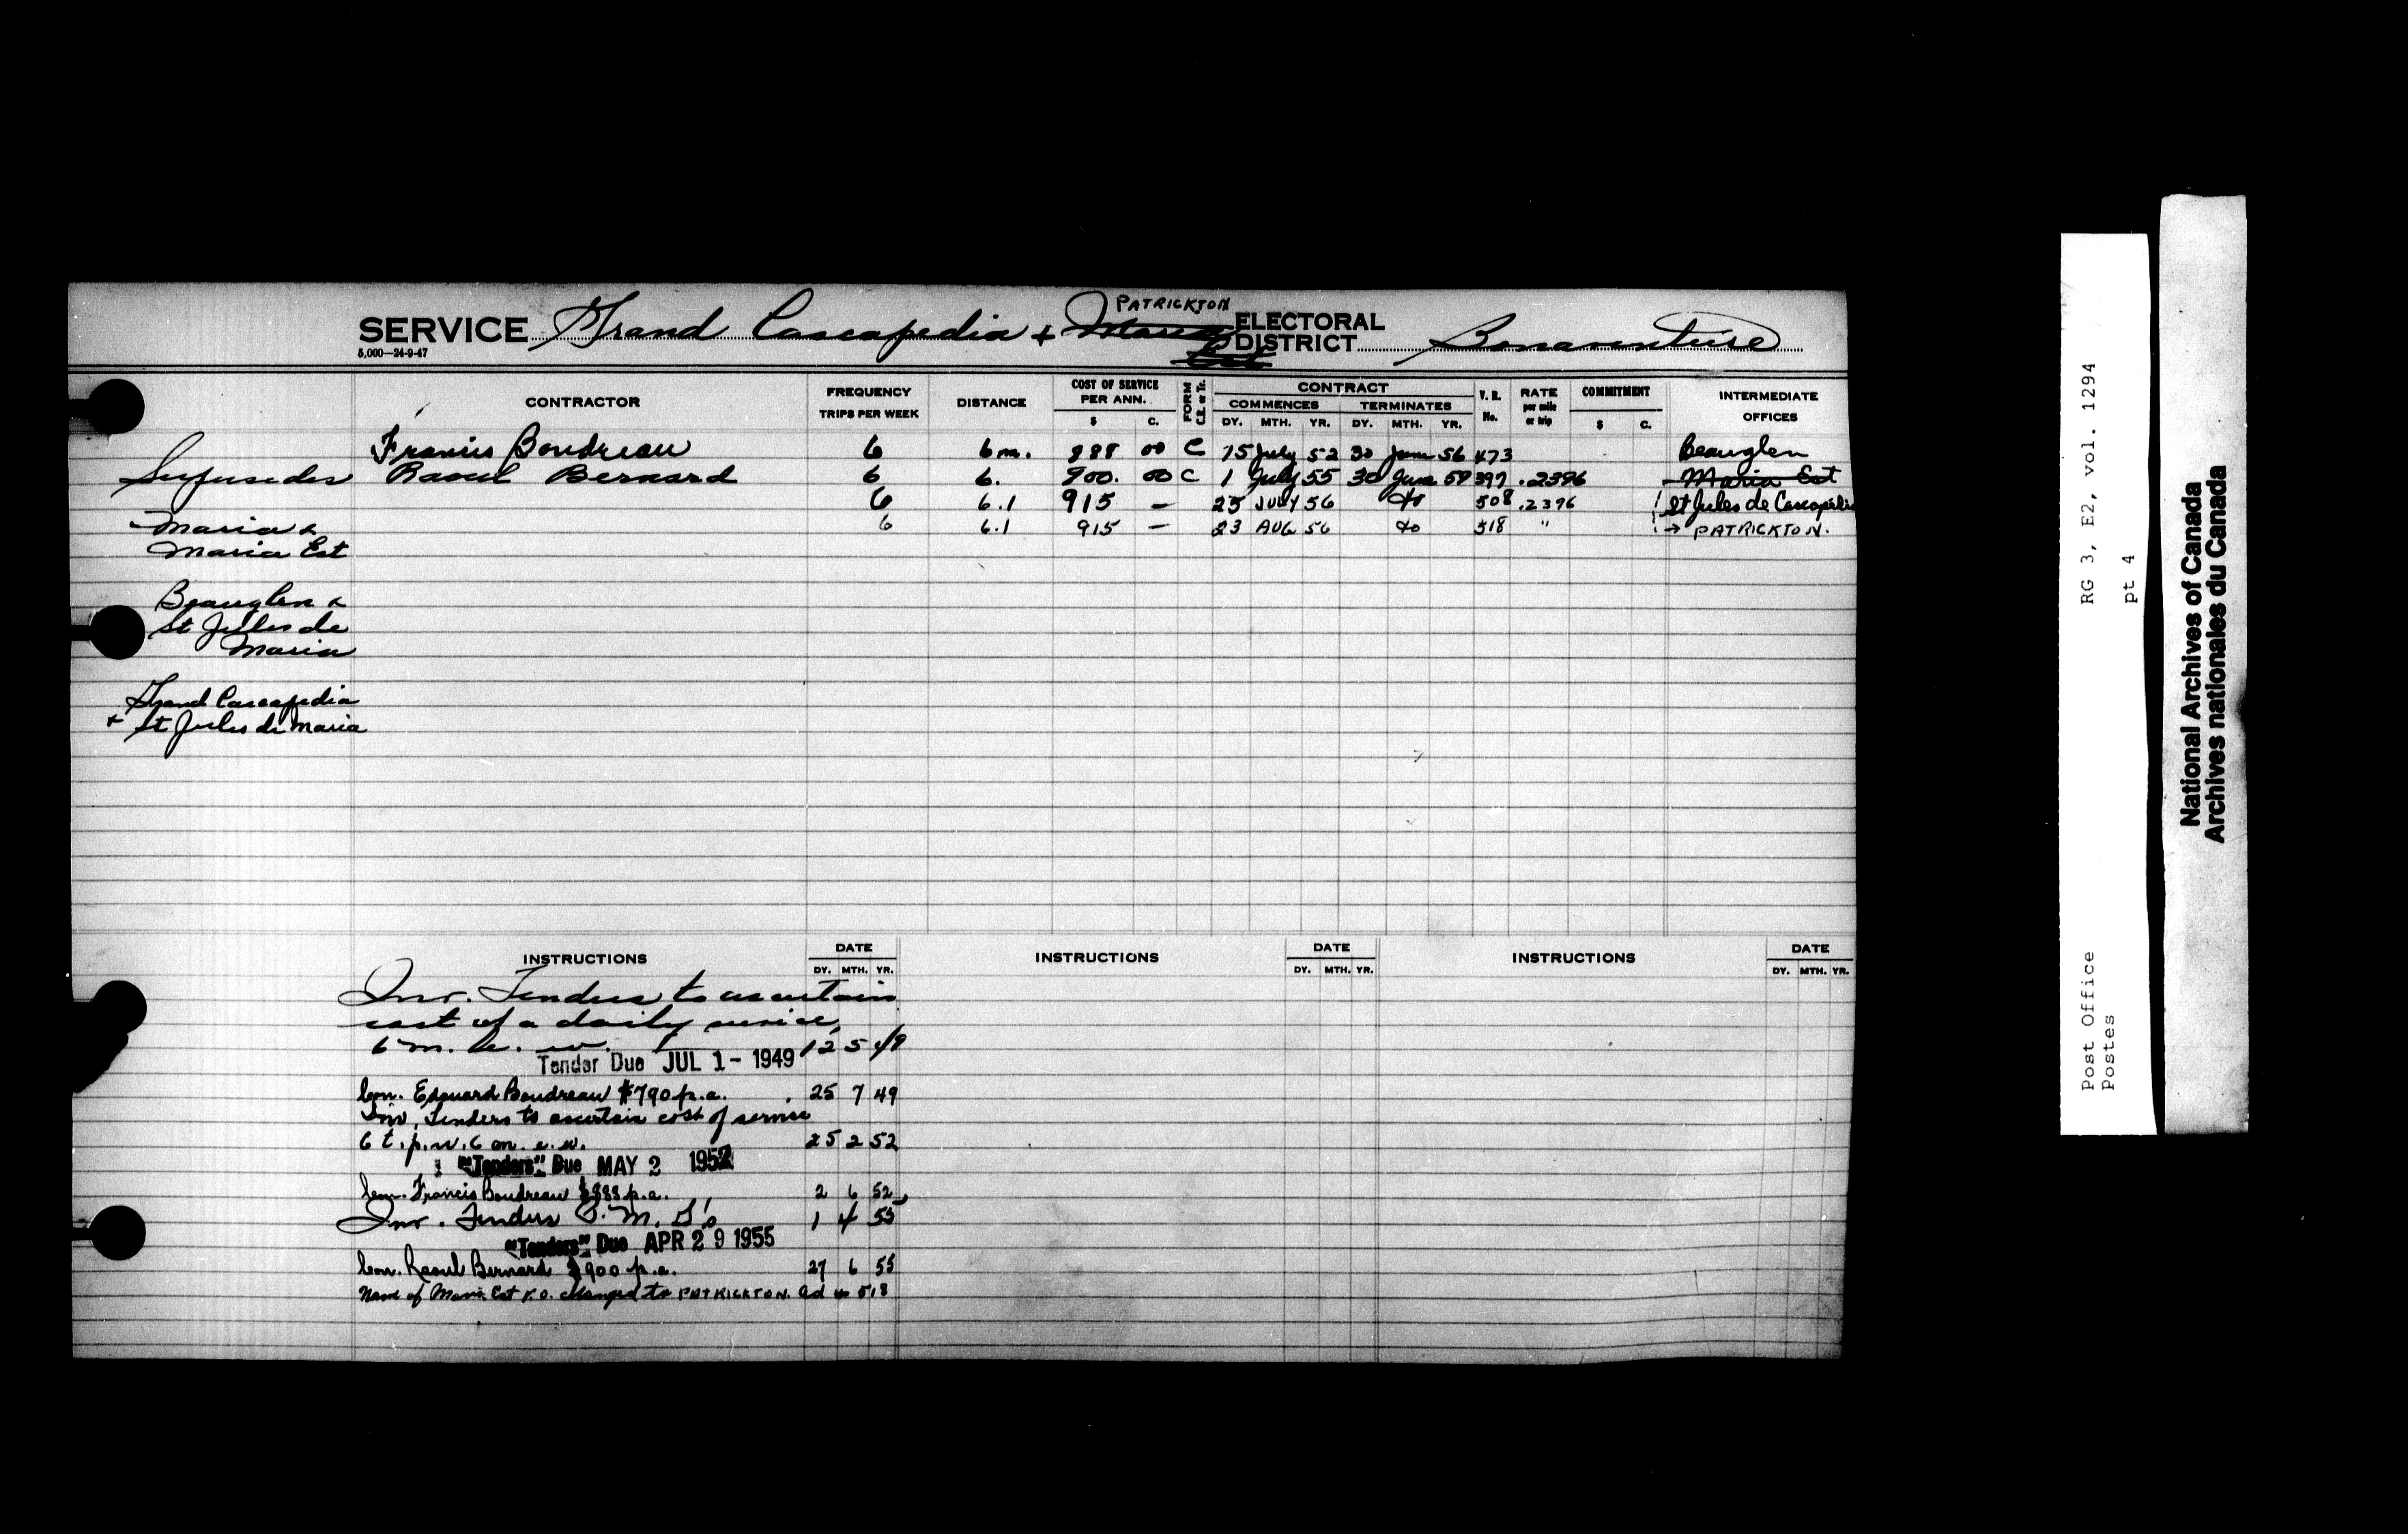 PATRICKTON
SERVICE Grand Cascapedia & Maria Est ELECTORAL DISTRICT Bonaventure
5,000—24-9-47
CONTRACTOR FREQUENCY TRIPS PER WEEK DISTANCE COST OF SERVICE PER ANN. $ C. FORM C.R. or Tr. CONTRACT COMMENCES DY. MTH. YR. TERMINATES DY. MTH. YR. V. R. No. RATE per mile or trip COMMITMENT $ C. INTERMEDIATE OFFICES
Francis Boudreau 6 6 m. 888 00 C 15 July 52 30 June 56 473 Beauglen
Supersedes Raoul Bernard 6 6. 900. 00 C 1 July 55 30 June 59 397 .2396 Maria Est
6 6.1 915 — 25 JULY 56 do 508 .2396 St Jules de Cascapédia
Maria & 6 6.1 915 — 23 AUG 56 do 518 " → PATRICKTON.
Maria Est
Beauglen &
St Jules de
Maria
Grand Cascapedia
& St Jules de Maria
INSTRUCTIONS DATE DY. MTH. YR. INSTRUCTIONS DATE DY. MTH. YR. INSTRUCTIONS DATE DY. MTH. YR.
Inv. Tenders to ascertain
cost of a daily service,
6 m. e. w. 12 5 49
Tender Due JUL 1 - 1949
Con. Edouard Boudreau $790 p.a. 25 7 49
Inv. Tenders to ascertain cost of service
6 t.p.w. 6 m. e. w. 25 2 52
"Tenders" Due MAY 2 1952
Con. Francis Boudreau $888 p.a. 2 6 52
Inv. Tenders P. M. G's 1 4 55
"Tenders" Due APR 29 1955
Con. Raoul Bernard $900 p.a. 27 6 55
Name of Maria Est P.O. changed to PATRICKTON. 518
Post Office RG 3, E2, vol. 1294
Postes pt 4
National Archives of Canada
Archives nationales du Canada